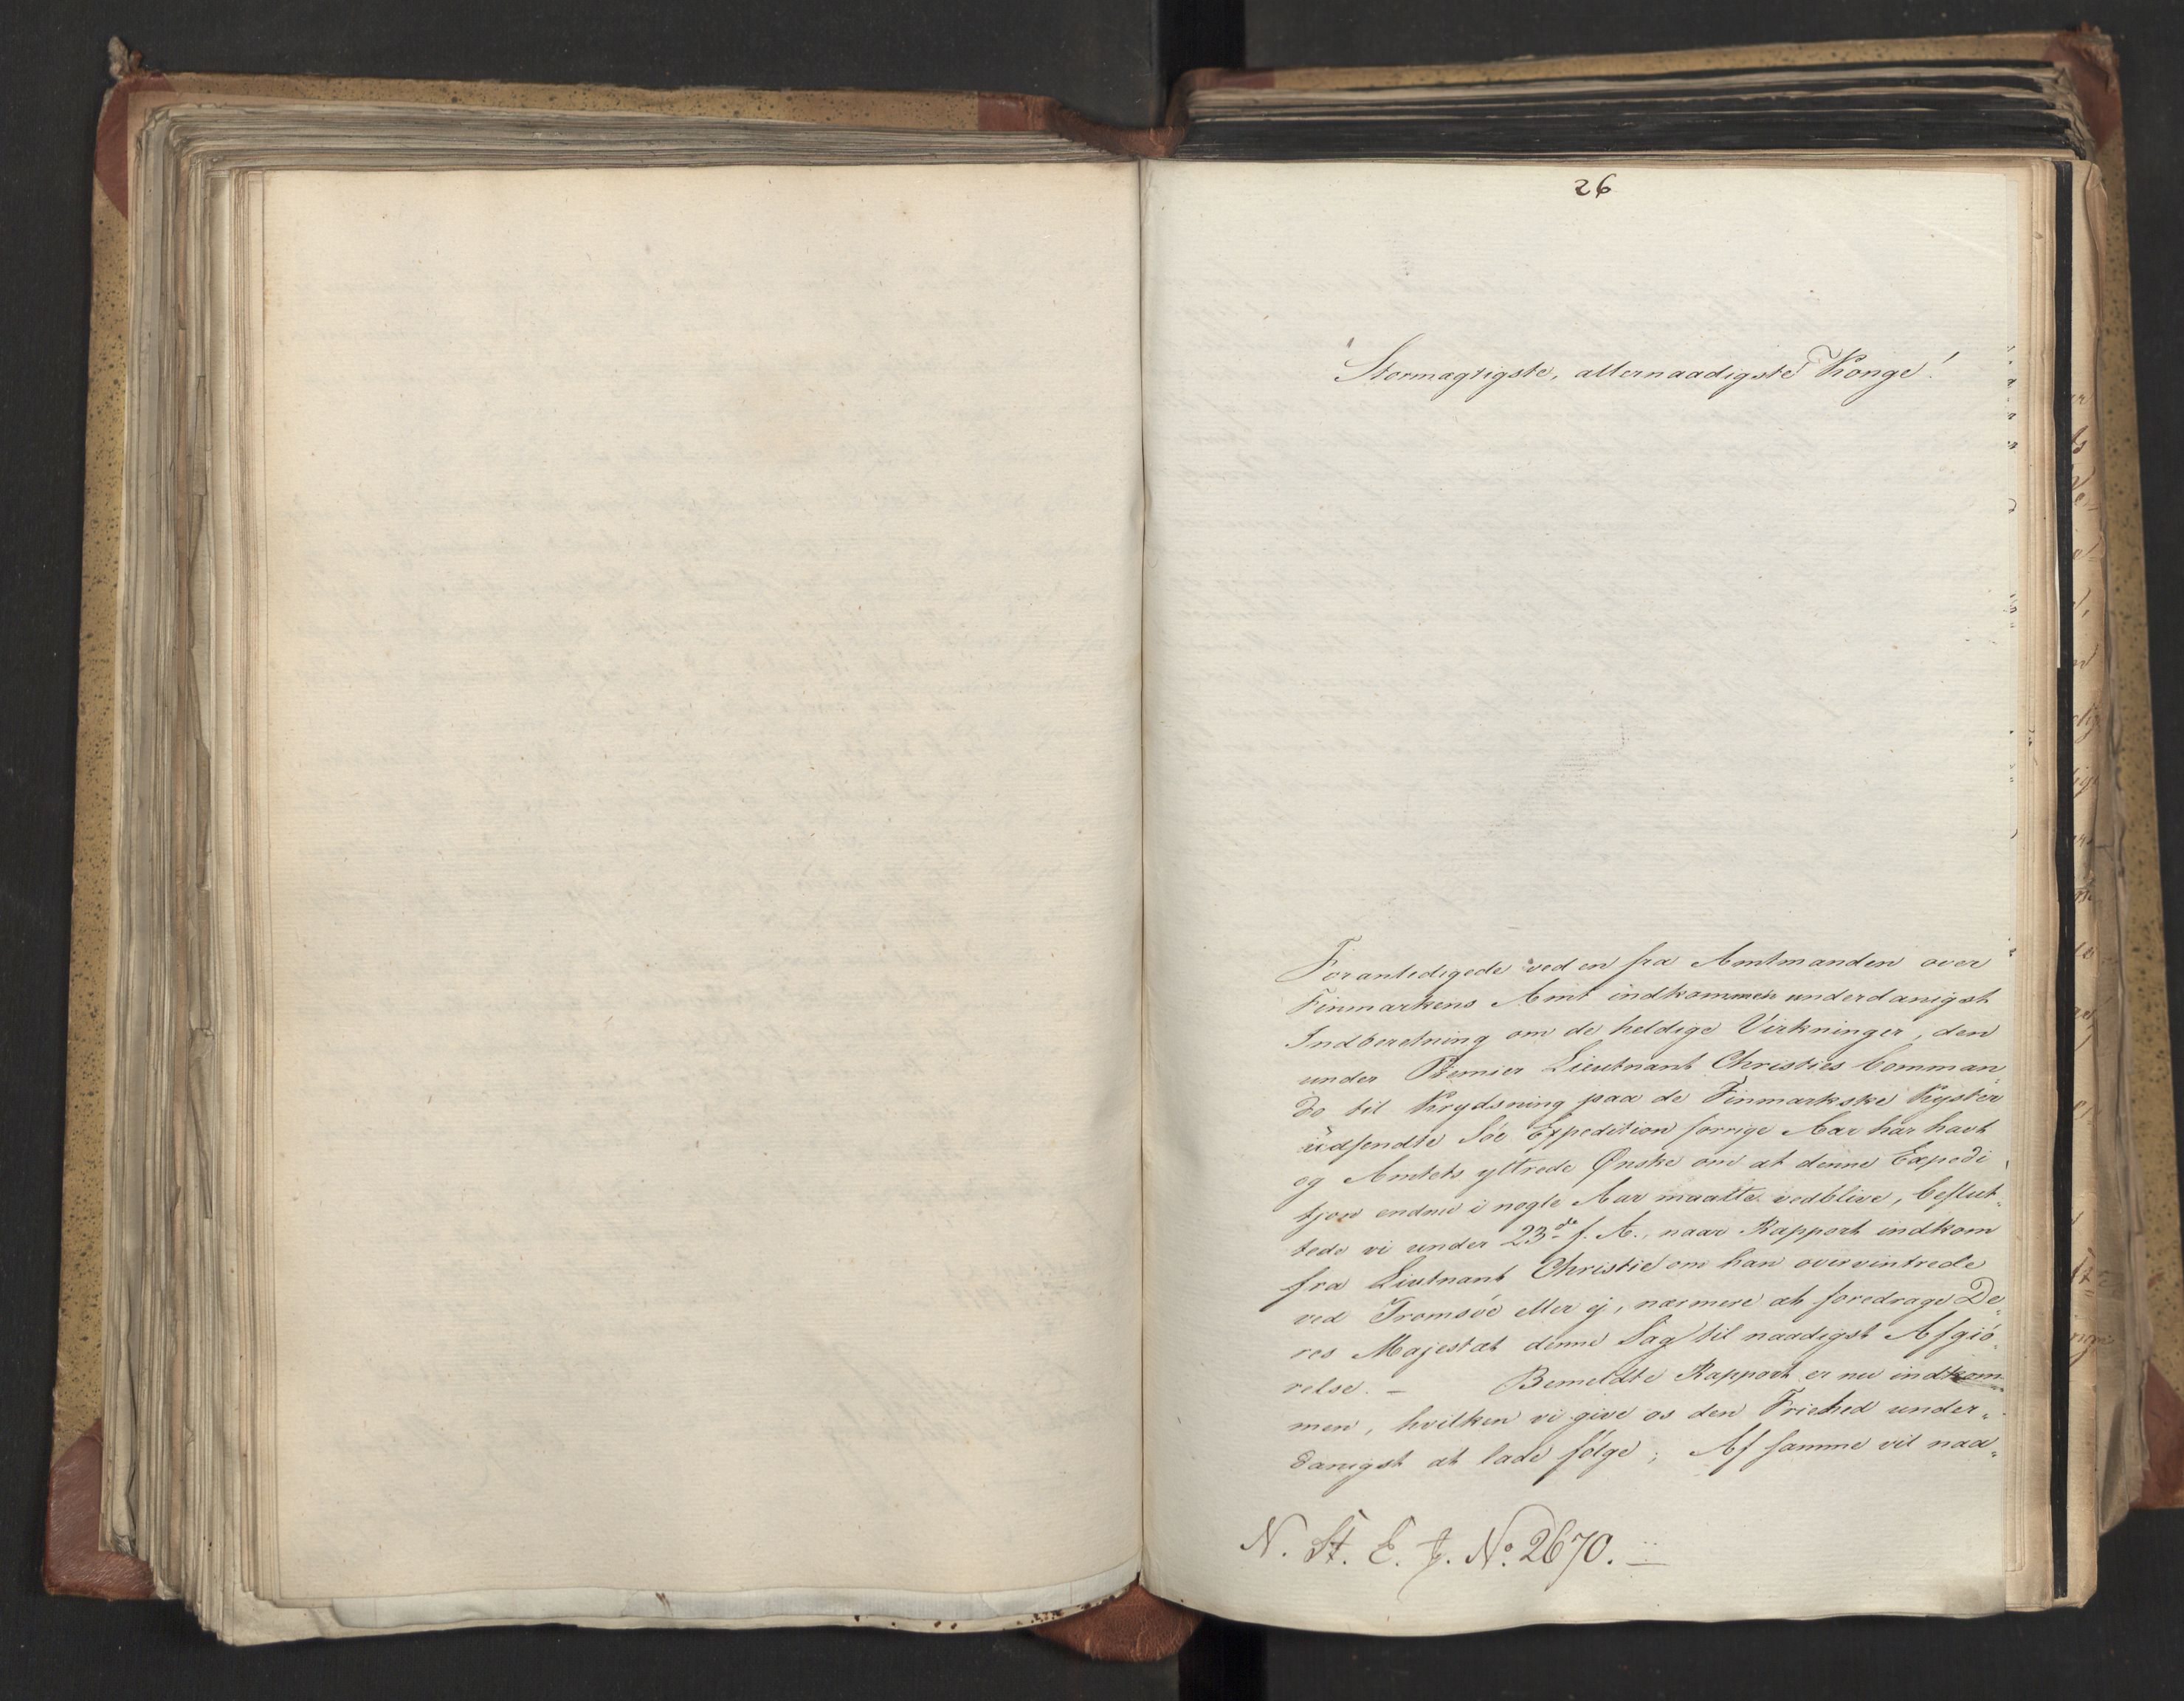 26
Stormægtigste, allernaadigste Konge!
Foranledigede ved en fra Amtmanden over
Finmarkens Amt indkommen underdanigst
Indberetning om de heldige Virkninger, den
under Premier Lieutnant Christies Comman„
do til Krydsning paa de Finmarkske Kyster
udsendte Söe Expedition forrige Aar har havt
og Amtets yttrede Ønske om at denne Expedi„
tjon endnu i nogle Aar maatte vedblive, beslut„
tede vi under 23de f. A., naar Rapport indkom
fra Liutnant Christie om han overvintrede
ved Tromsöe eller ej, nærmere at foredrage De„
res Majestæt denne Sag til naadigst Afgiö„
relse. – Bemeldte Rapport er nu indkom„
men, hvilken vi give os den Friehed under„
danigst at lade fölge; Af samme vil naa„
N. St. E. J. No. 2670.